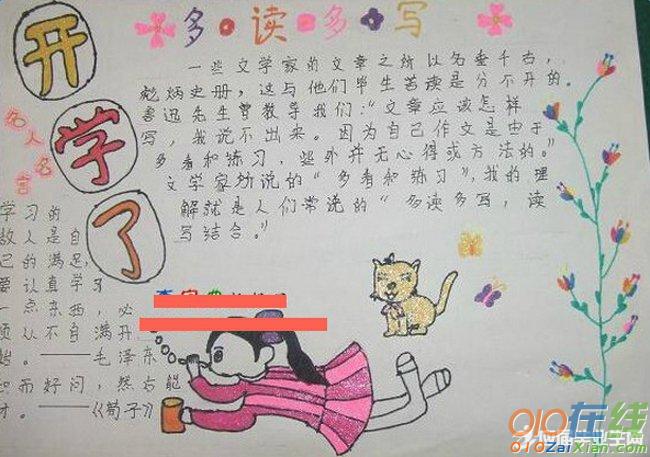 开学了
多·读·多·写
一些文学家的文章之所以名垂千古,
彪炳史册,这与他们毕生苦读是分不开的。
鲁迅先生曾教导我们:“文章应该怎样
写,我说不出来。因为自己作文是由于
多看和练习,些外并无心得或方法的。”
文学家所说的“多看和练习”,我的理
解就是人们常说的“多读多写,读
写结合。”
名人名言
学习的
敌人是自
己的满足,
要认真学习
一点东西,必
须从不自满开
始。——毛泽东
知而好问,然后能
才。——《荀子》
010在线
010ZaiXian.com